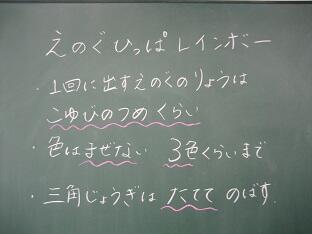 えのぐひっぱレインボー
・1回に出すえのぐのりょうは
こゆびのつめくらい
・色はまぜない 3色くらいまで
・三角じょうぎはたててのばす.